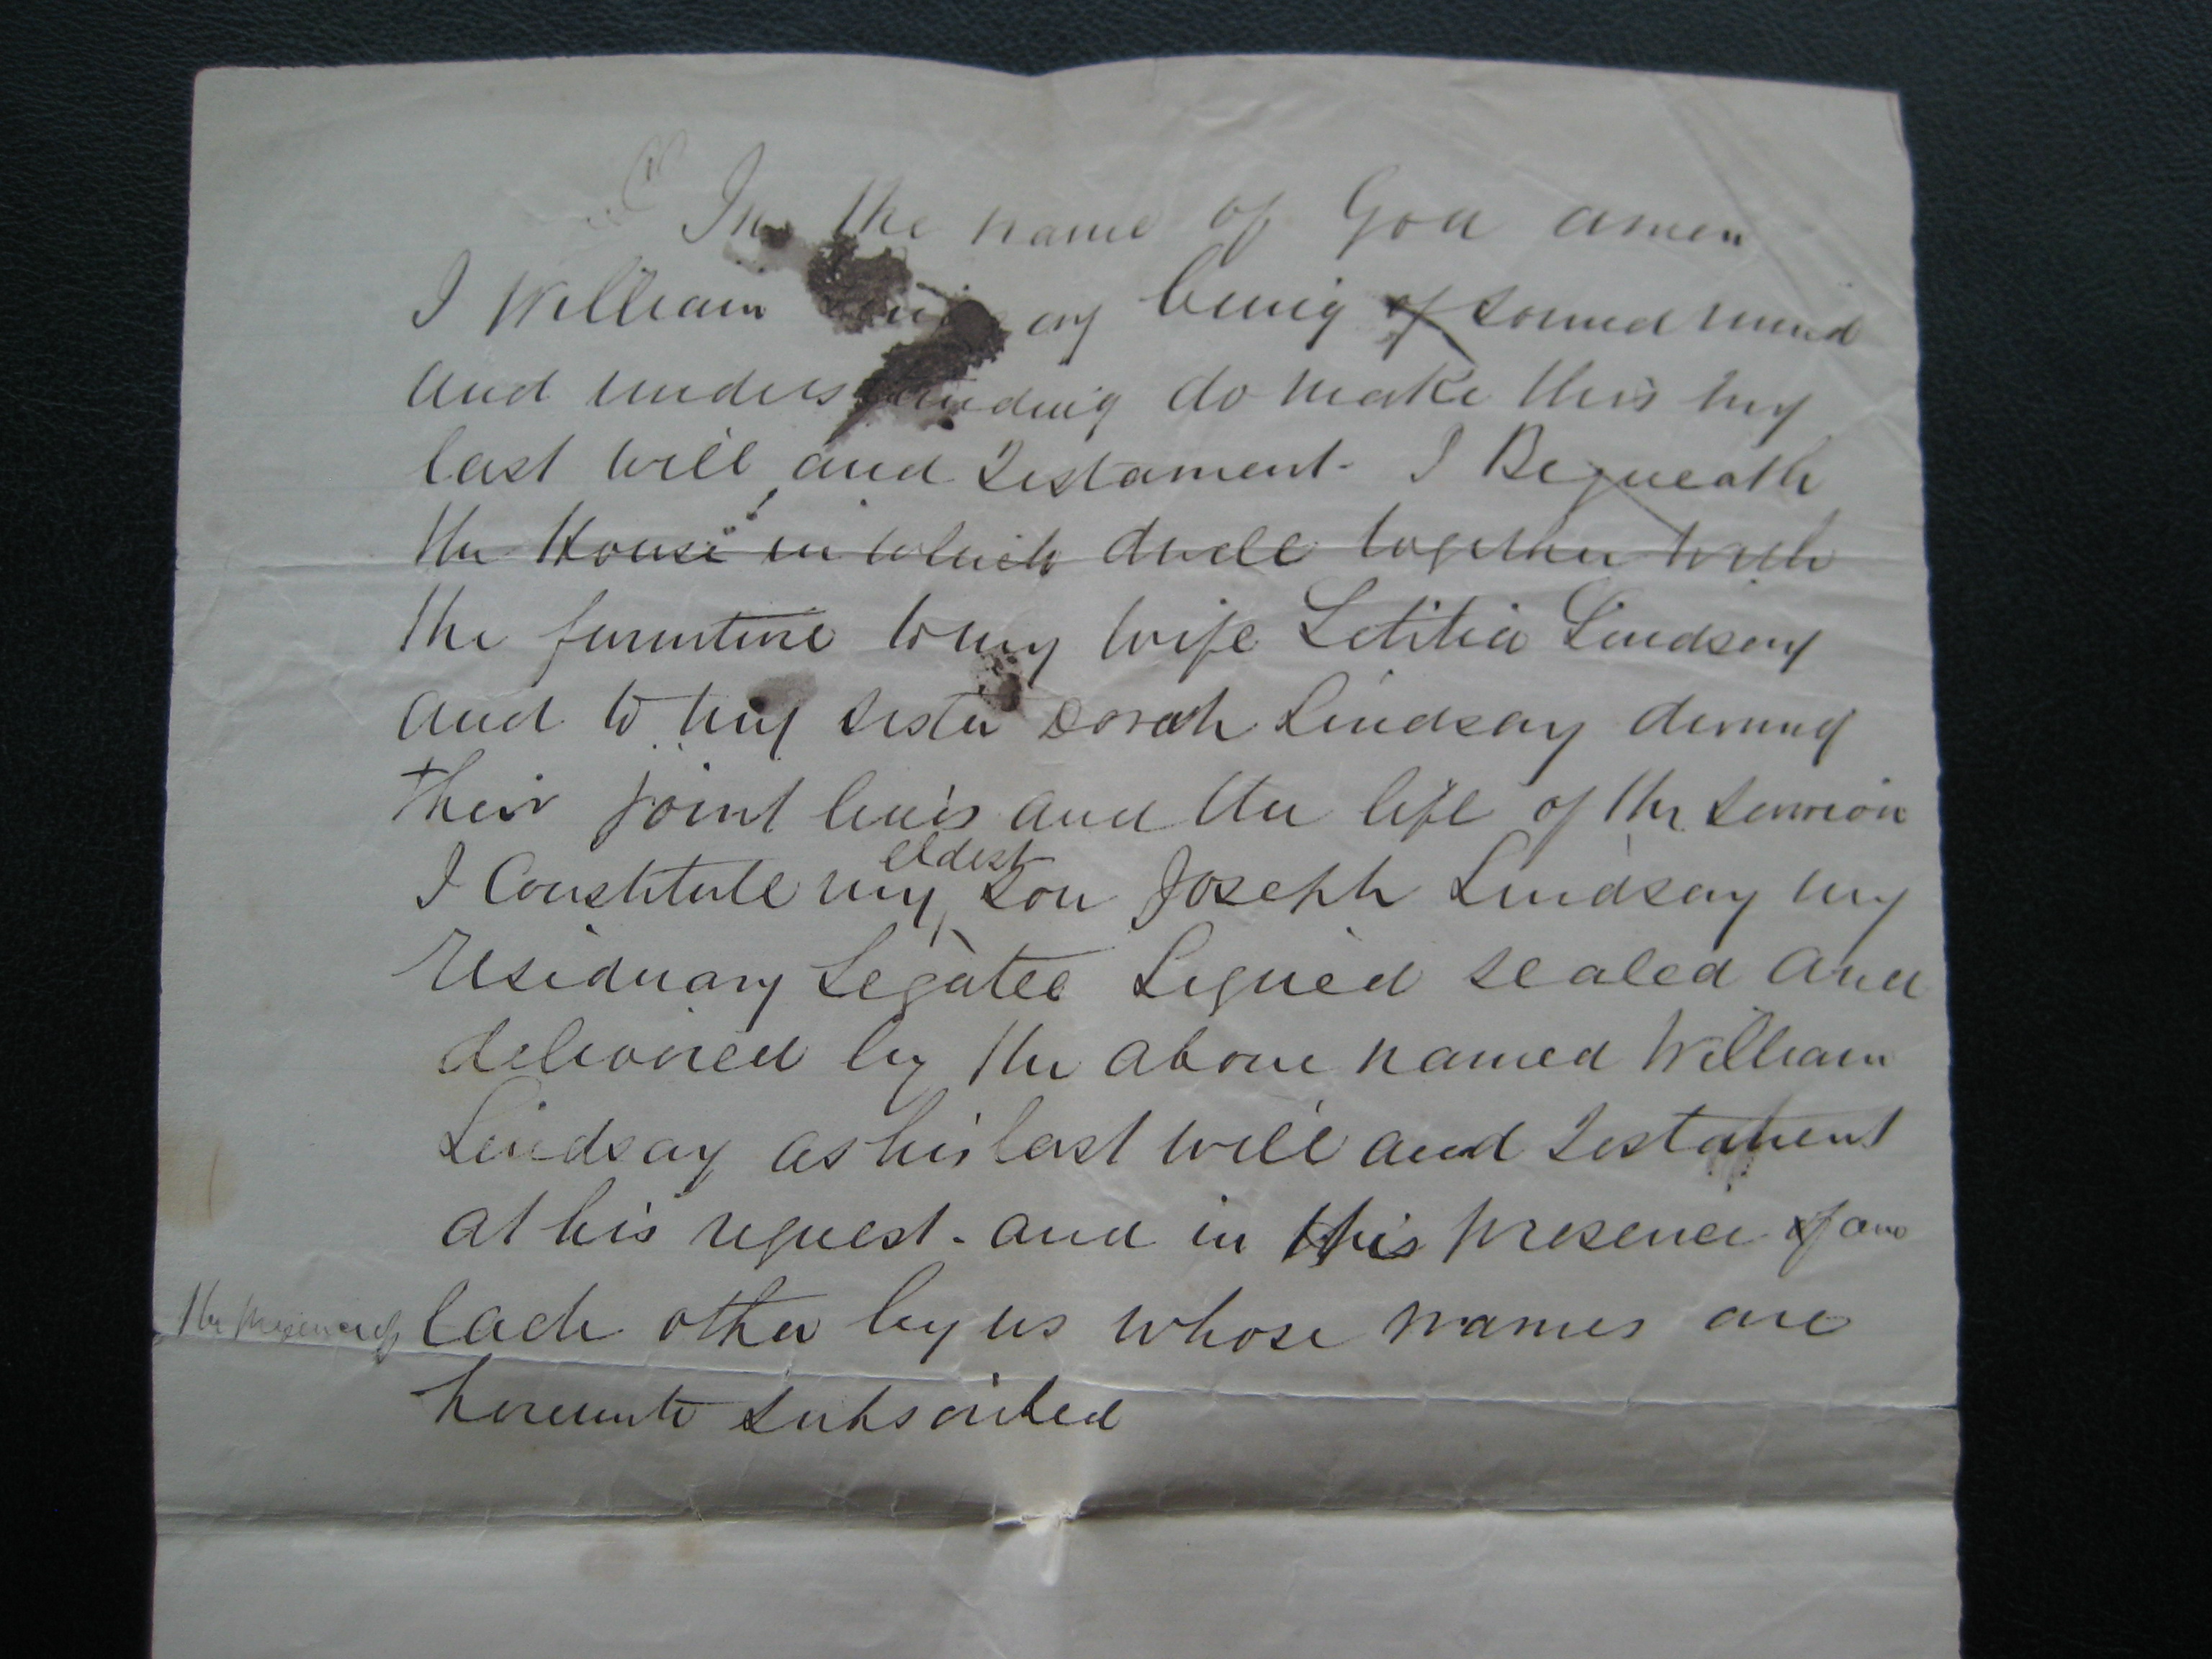 In the name of God amen
I William Lindsay being of sound mind
and understanding do make this my
last will and Testament. I Bequeath
the House in which dwell together with
the furniture to my wife Letitia Lindsay
and to my sister Sorah Lindsay during
their joint lives and the life of the survivor
eldest
I Constitute my son Joseph Lindsay my
residuary Legatee Signed sealed and
delivered by the above named William
Lindsay as his last will and Testament
at his request. and in his presence and
the presence of each other by us whose names are
hereunto subscribed